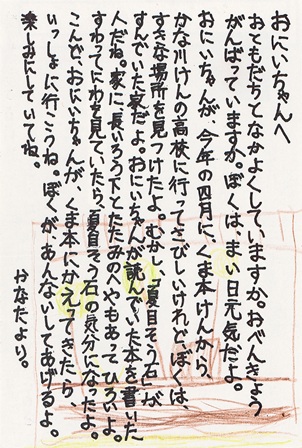 おにいちゃんへ
おともだちとなかよくしていますか。おべんきょう
がんばっていますか。ぼくは、まい日元気だよ。
おにいちゃんが、今年の四月に、くま本けんから、
かな川けんの高校に行ってさびしいけれどぼくは、
すきな場所を見つけたよ。むかし「夏目そう石」が
すんでいた家だよ。おにいちゃんが読んでいた本を書いた
人だね。家に長いろう下とたたみのへやもあってひろいよ。
すわってにわを見ていたら、夏目そう石の気分になったよ。
こんど、おにいちゃんが、くま本にかえってきたら
いっしょに行こうね。ぼくが、あんないしてあげるよ。
楽しみにしていてね。
かなたより。